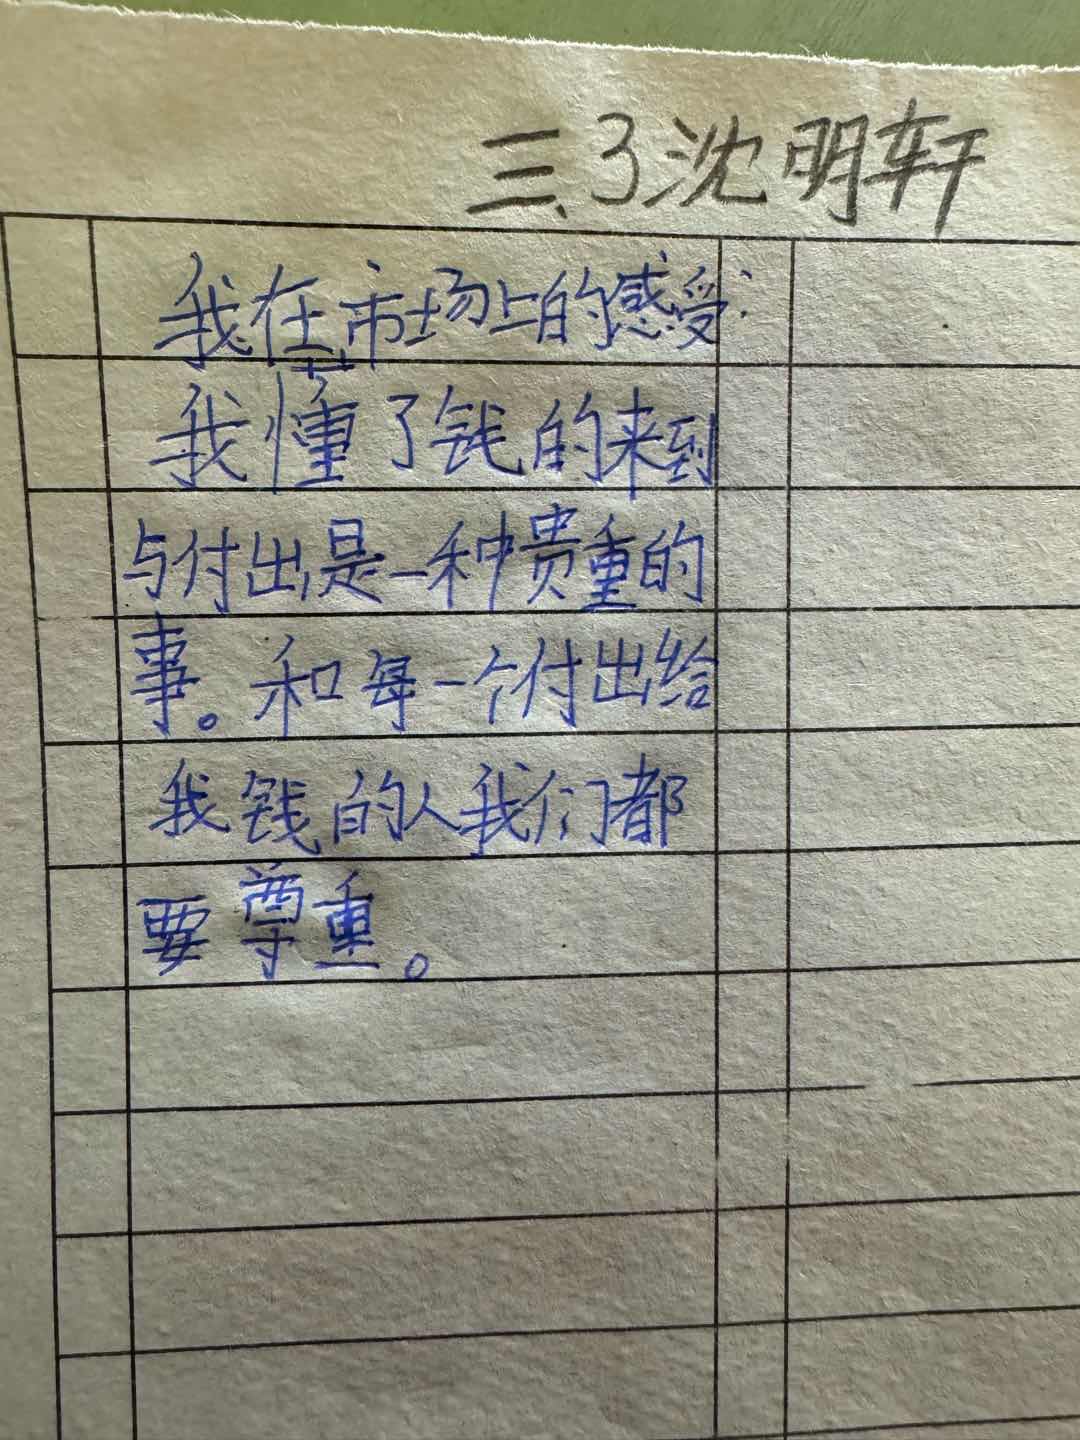 三、3沈明轩
我在市场上的感受：
我懂了钱的来到
与付出是一种贵重的
事。和每一个付出给
我钱的人我们都
要尊重。